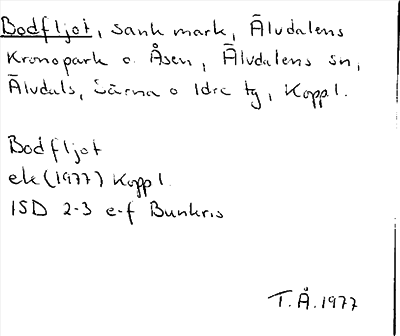 Bodfljot, sank mark, Älvdalens
Kronopark o. Åsen, Älvdalens sn,
Älvdals, Särna o Idre tg, Koppl.
Bodfljot
ek (1977) Koppl.
ISD 2-3 e-f Bunkris
T.Å. 1977